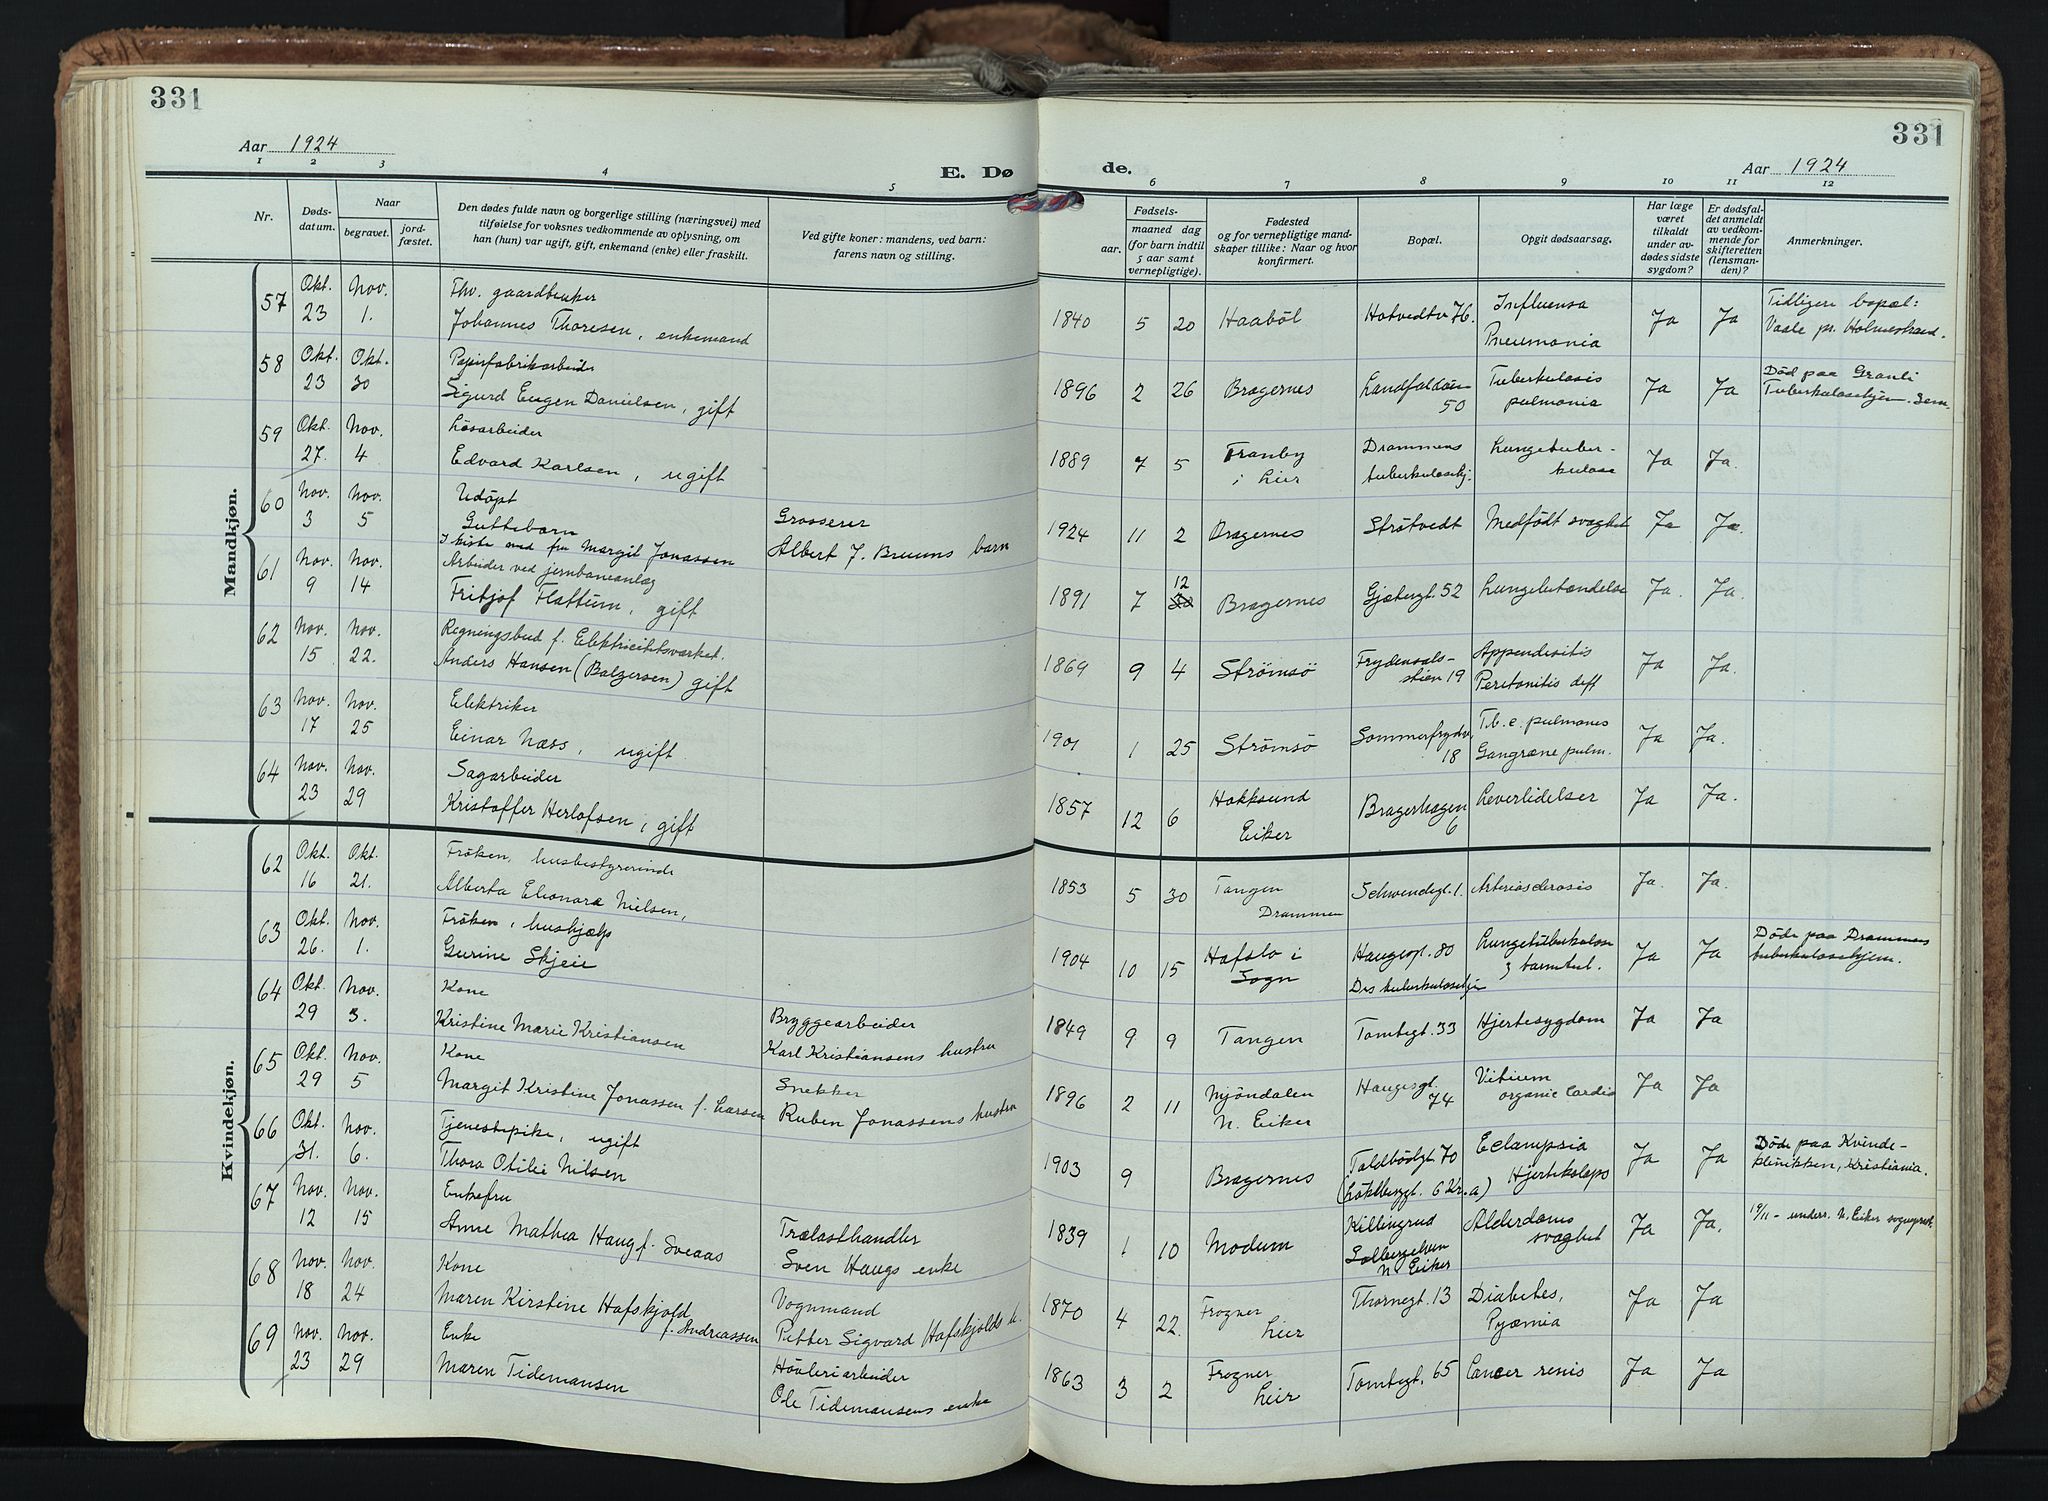 331
331
Aar 1924
E. Dø
de.
Aar 1924
1 2 3 4 5 6 7 8 9 10 11 12
Nr.
Døds-
datum.
Naar
begravet.
jord-
fæstet.
Den dødes fulde navn og borgerlige stilling (næringsvei) med
tilføielse for voksnes vedkommende av oplysning, om
han (hun) var ugift, gift, enkemand (enke) eller fraskilt.
Ved gifte koner: mandens, ved barn:
farens navn og stilling.
Fødsels-
aar.
maaned dag
(for barn indtil
5 aar samt
vernepligtige).
Fødested
og for vernepligtige mand-
skaper tillike: Naar og hvor
konfirmert.
Bopæl.
Opgit dødsaarsag.
Har læge
været
tilkaldt
under av-
dødes sidste
sygdom?
Er dødsfal-
det anmeldt
av vedkom-
mende for
skifteretten
(lensman-
den)?
Anmerkninger.
Mandkjøn.
57 Okt. 23 Nov. 1. Fhv. gaardbruker
Johannes Thoresen, enkemand 1840 5 20 Haaböl Hotvedtv 76. Influensa
Pneumonia Ja Ja Tidligere bopæl:
Vaale pr. Holmestrand.
58 Okt. 23 Okt. 30 Papirfabrikarbeider
Sigurd Eugen Danielsen, gift 1896 2 26 Bragernes Landfaldöen
50 Tuberkulosis
pulmonia Ja Ja Död paa Granli
Tuberkulosehjem. Sem.
59 Okt. 27. Nov. 4 Løsarbeider
Edvard Karlsen, ugift 1889 7 5 Tranby
i Lier Drammens
tuberkulosehj. Lungetuber-
kulose Ja Ja.
60 Nov. 3 Nov. 5 Udöpt
Guttebarn
I kiste med fru Margit Jonassen Grosserer
Albert J. Bruuns barn 1924 11 2 Bragernes Strötvedt Medfödt svaghet Ja Ja.
61 Nov. 9 Nov. 14 Arbeider ved jernbaneanlæg
Fritjof Flattum, gift 1891 7 12 30 Bragernes Gjetergt. 52 Lungebetændelse Ja. Ja.
62 Nov. 15 Nov. 22. Regningsbud f. Elektricitetsværket.
Anders Hansen (Balgersen) gift 1869 9 4 Strømsö Frydendals-
stien 19 Appendesitis
Peritonitis diff Ja Ja.
63 Nov. 17 Nov. 25 Elektriker
Einar Næss, ugift 1901 1 25 Strömsö Sommerfrydv.
18 T.b.c. pulmones
Gangræne pulm. Ja Ja.
64 Nov. 23 Nov. 29 Sagarbeider
Kristoffer Herlofsen, gift 1857 12 6 Hokksund
Eiker Bragerhagen
6 Leverlidelser Ja Ja.
Kvindekjøn.
62 Okt. 16 Okt. 21. Fröken, husbestyrerinde
Alberta Elionora Nielsen, 1853 5 30 Tangen
Drammen Schwendsgt. 1. Arteriosclerosis Ja. Ja.
63 Okt. 26. Nov. 1. Fröken, hushjælp
Gurine Skjeie 1904 10 15 Hafslo i
Sogn Haugesgt. 80
Drs tuberkulosehjem Lungetuberkulose
& tarmtub. Ja Ja Döde paa Drammens
tuberkulosehjem.
64 Okt. 29 Nov. 3. Kone
Kristine Marie Kristiansen Bryggearbeider
Karl Kristiansens hustru 1849 9 9 Tangen Tomtegt. 33 Hjertesygdom Ja Ja
65 Okt. 29 Nov. 5 Kone
Margit Kristine Jonassen f. Larsen Snekker
Ruben Jonassens hustru 1896 2 11 Mjöndalen
N. Eiker Haugesgt.
74 Vitium
organic Cardis Ja Ja
66 Okt. 31. Nov. 6. Tjenestepike, ugift
Thora Otilie Nilsen 1903 9 Bragernes Toldbodgt. 70
(Lökkebergt. 6 Kr.a) Eclampsia
Hjertekolaps Ja Ja Döde paa Kvinde-
klinikken, Kristiania.
67 Nov. 12 Nov. 15 Enkefru
Anne Mathea Haug f. Sveaas Trælasthandler
Sven Haugs enke 1839 1 10 Modum Killingrud
Solbergelven
N. Eiker Alderdoms
svaghet Ja Ja. 19/11 - underr. N. Eiker sogneprest.
68 Nov. 18 Nov. 24 Kone
Maren Kirstine Hafskjold
f. Andreassen Vognmand
Petter Sigvard Hafskjolds h. 1870 4 22. Frogner
Lier Thornegt. 13 Diabetes,
Pyæmia Ja Ja
69 Nov. 23 Nov. 29 Enke
Maren Tidemansen Hövleriarbeider
Ole Tidemansens enke 1863 3 2 Frogner
Lier Tomtegt. 65 Cancer renis Ja Ja